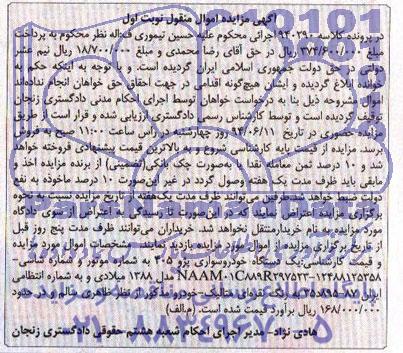 آگهی مزایده اموال منقول نوبت اول
در پرونده کلاسه ۹۴۰۳۹۰ اجرائی محکوم علیه حسین تیموری ف:اله نظر محکوم به پرداخت
مبلغ ۳۷۴/۶۰۰/۰۰۰ ریال در حق آقای رضا محمدی و مبلغ ۱۸/۷۰۰/۰۰۰ ریال نیم عشر
دولتی در حق دولت جمهوری اسلامی ایران گردیده است. و با توجه به اینکه حکم به
خوانده ابلاغ گردیده و ایشان هیچ‌گونه اقدامی در جهت احقاق حق خواهان انجام نداده‌اند
اموال مشروحه ذیل بنا به درخواست خواهان توسط اجرای احکام مدنی دادگستری زنجان
توقیف گردیده است و توسط کارشناس رسمی دادگستری ارزیابی شده و قرار است از طریق
مزایده حضوری در تاریخ ۹۴/۰۶/۱۱ روز چهارشنبه در راس ساعت ۱۱:۰۰ صبح به فروش
برسد. مزایده از قیمت پایه کارشناسی شروع و به بالاترین قیمت پیشنهادی فروخته خواهد
شد و ۱۰ درصد ثمن معامله نقدا به‌صورت چک بانکی(تضمینی) از برنده مزایده اخذ و
مابقی باید ظرف مدت یک هفته وصول گردد در غیر این‌صورت ۱۰ درصد ماخوذه به نفع
دولت ضبط خواهد شد.طرفین می‌توانند ظرف مدت یک‌هفته از تاریخ مزایده نسبت به نحوه
برگزاری مزایده اعتراض نمایند که در این‌صورت تا رسیدگی به اعتراض از سوی دادگاه
مورد مزایده به نام خریدارمنتقل نخواهد شد. خریداران می‌توانند ظرف مدت پنج روز قبل
از تاریخ برگزاری مزایده از اموال مورد مزایده بازدید نمایند. مشخصات اموال مورد مزایده
و قیمت کارشناسی:یک دستگاه‌سواری پژو ۴۰۵ به شماره موتور و شماره شاسی-
۱۲۴۸۸۱۲۵۳۵۸-NAAM۰۱C۸۹R۲۹۷۵۳۳ مدل ۱۳۸۸ میلادی و به شماره انتظامی
ایران ۸۷-۸۹۵د۳۵ به رنگ نقره‌ای متالیک-خودرو مذکور از نظر ظاهری سالم و در حدود
۱۶۸/۰۰۰/۰۰۰ ریال برآورد می‌گردد. (م.الف)
هادی نژاد- مدیر اجرای احکام شعبه هشتم حقوقی دادگستری زنجان